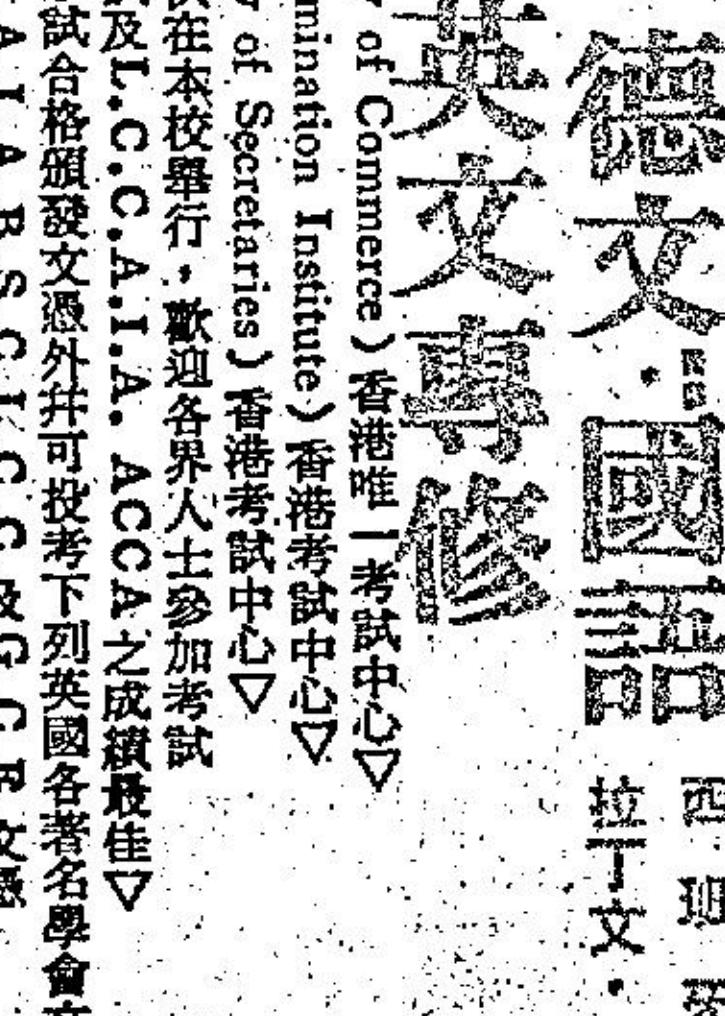 西班
德文·國語
拉丁文·
英文專修
of Commerce)香港唯一考試中心▽
mination Institute)香港考試中心▽
of Secretaries)香港考試中心▽
在本校舉行,歡迎各界人士參加考試
及L.C.C.A.I.A. ACCA之成績最佳▽
試合格頒發文憑外幷可投考下列英國各著名學會
文憑